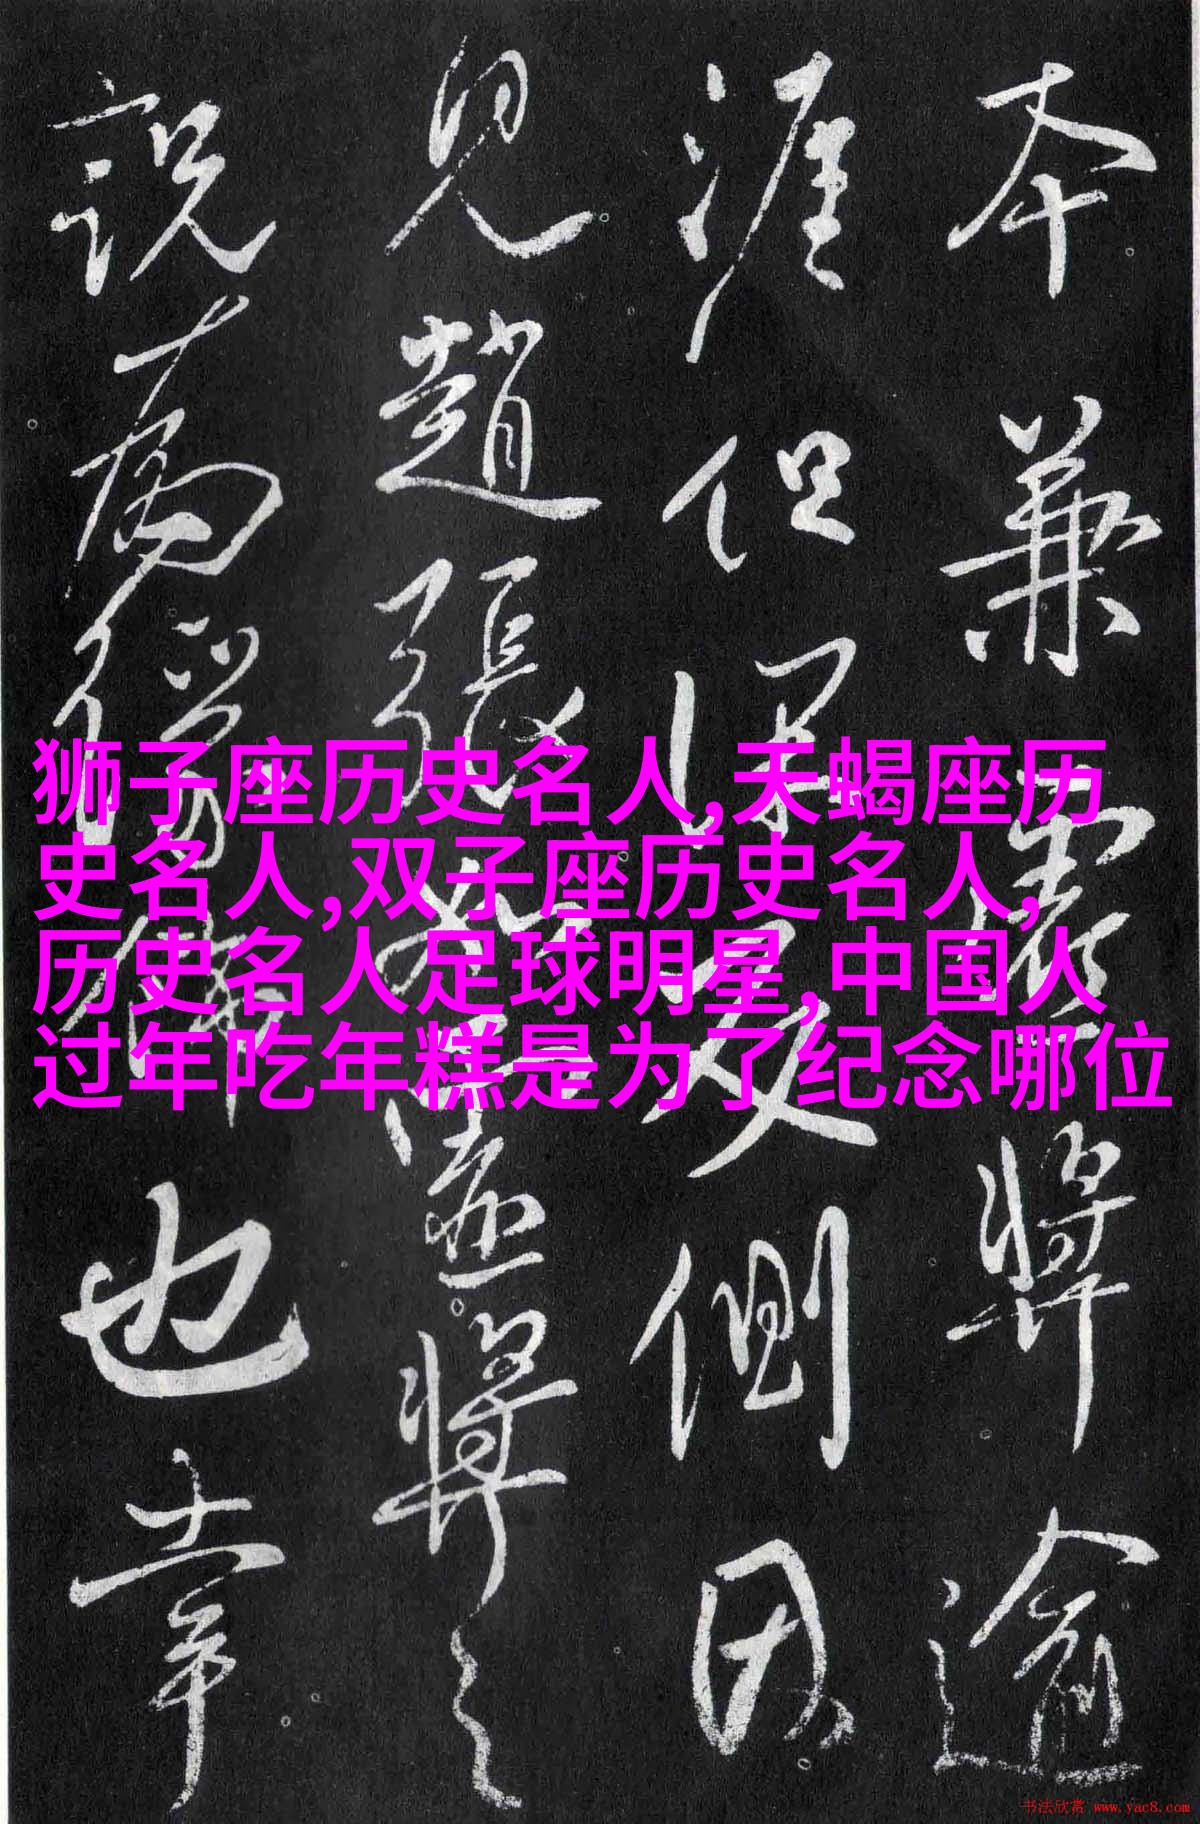 本兼霖将逾
涯但深反侧因
見趙張
遠將之
説為
也幸
狮子座历史名人,天蝎座历
史名人,双子座历史名人,
历史名人足球明星,中国人
过年吃年糕是为了纪念哪位
书法欣赏 www.yac8.com